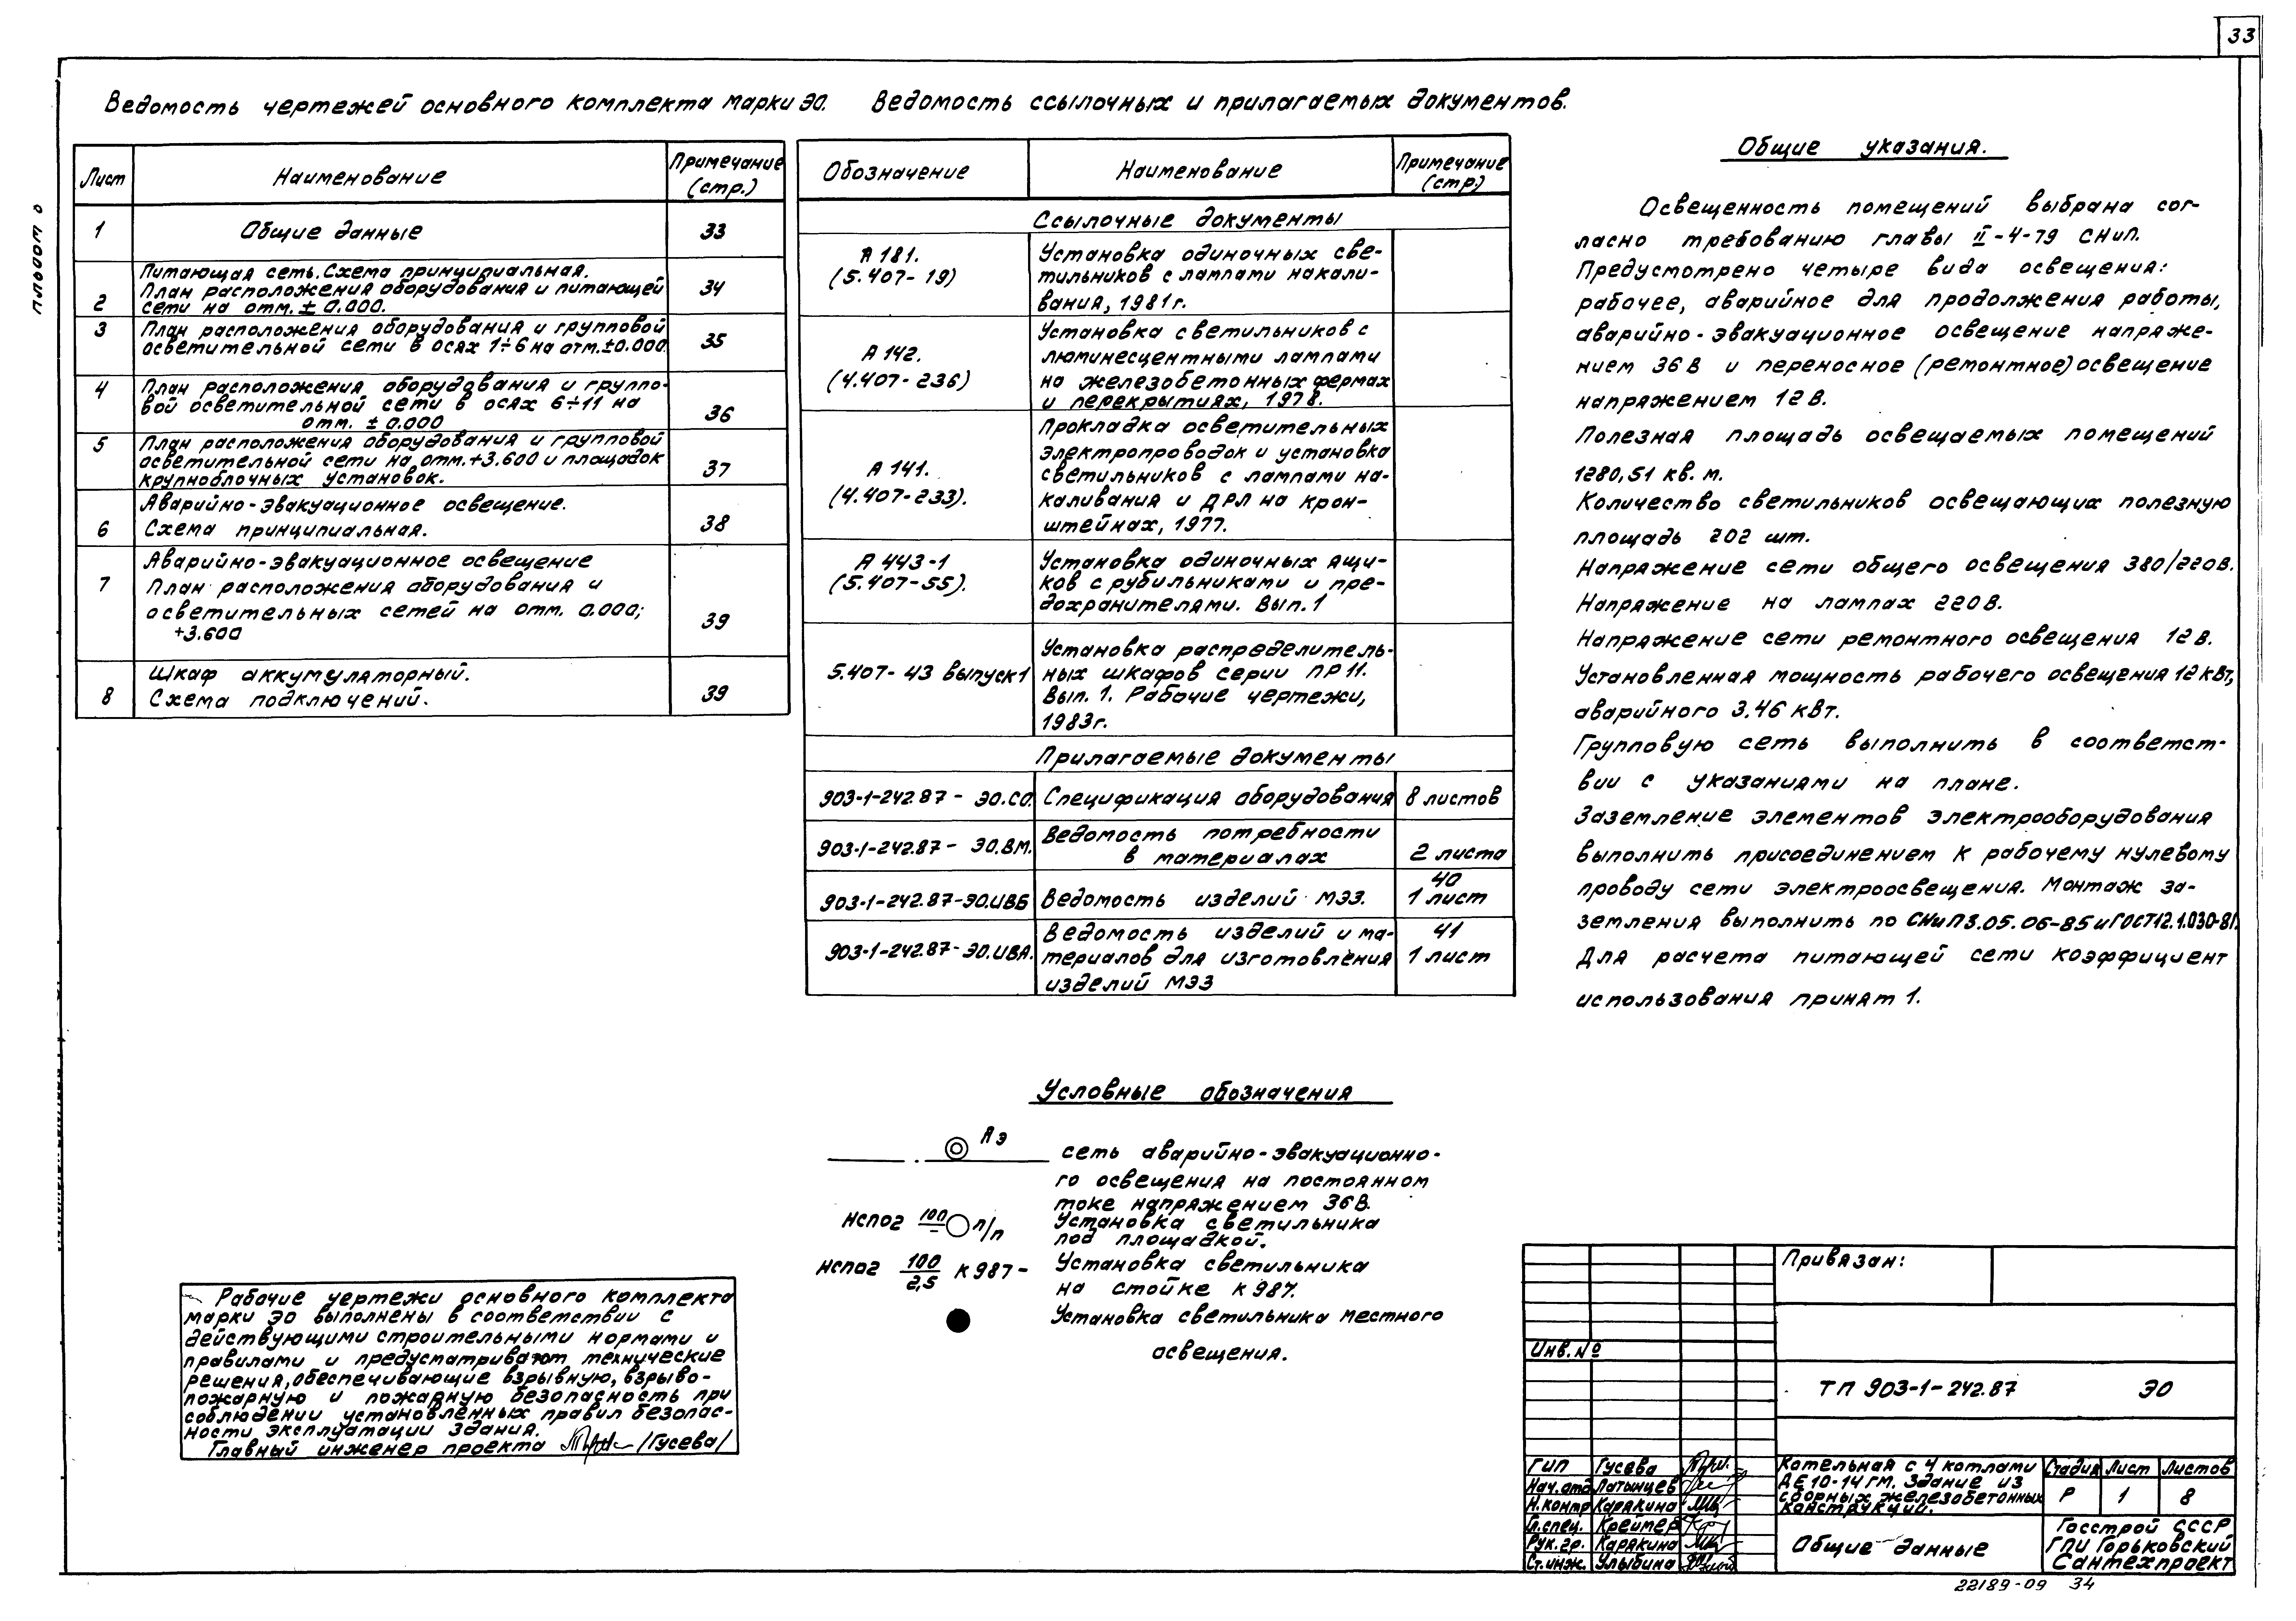 33
Альбом 0
Ведомость чертежей основного комплекта марки ЭО.
Лист
Наименование
Примечание
(стр.)
1
Общие данные
33
2
Питающая сеть. Схема принципиальная.
План расположения оборудования и питающей
сети на отм. ± 0.000.
34
3
План расположения оборудования и групповой
осветительной сети в осях 1÷6 на отм. ±0.000.
35
4
План расположения оборудования и группо-
вой осветительной сети в осях 6÷11 на
отм. ± 0.000
36
5
План расположения оборудования и групповой
осветительной сети на отм. +3.600 и площадок
крупноблочных установок.
37
6
Аварийно-эвакуационное освещение.
Схема принципиальная.
38
7
Аварийно-эвакуационное освещение
План расположения оборудования и
осветительных сетей на отм. 0.000;
+3.600
39
8
Шкаф аккумуляторный.
Схема подключений.
39
Ведомость ссылочных и прилагаемых документов.
Обозначение
Наименование
Примечание
(стр.)
Ссылочные документы
А 181.
(5.407-19)
Установка одиночных све-
тильников с лампами накали-
вания, 1981г.
А 142.
(4.407-236)
Установка светильников с
люминесцентными лампами
на железобетонных фермах
и перекрытиях, 1978.
А 141.
(4.407-233).
Прокладка осветительных
электропроводок и установка
светильников с лампами на-
каливания и ДРЛ на крон-
штейнах, 1977.
А 443-1
(5.407-55).
Установка одиночных ящи-
ков с рубильниками и пре-
дохранителями. Вып. 1
5.407-43 выпуск 1
Установка распределитель-
ных шкафов серии ПР 11.
Вып. 1. Рабочие чертежи,
1983г.
Прилагаемые документы
903-1-242.87 - ЭО.СО.
Спецификация оборудования
8 листов
903-1-242.87 - ЭО.ВМ.
Ведомость потребности
в материалах
2 листа
903-1-242.87-ЭО.ИВБ
Ведомость изделий МЭЗ.
40
1 лист
903-1-242.87- ЭО.ИВА.
Ведомость изделий и ма-
териалов для изготовления
изделий МЭЗ
41
1 лист
Общие указания.
Освещенность помещений выбрана сог-
ласно требованию главы II-4-79 СНиП.
Предусмотрено четыре вида освещения:
рабочее, аварийное для продолжения работы,
аварийно-эвакуационное освещение напряже-
нием 36 В и переносное (ремонтное) освещение
напряжением 12 В.
Полезная площадь освещаемых помещений
1280,51 кв. м.
Количество светильников освещающих полезную
площадь 202 шт.
Напряжение сети общего освещения 380/220В.
Напряжение на лампах 220В.
Напряжение сети ремонтного освещения 12 В.
Установленная мощность рабочего освещения 12 кВт,
аварийного 3.46 кВт.
Групповую сеть выполнить в соответст-
вии с указаниями на плане.
Заземление элементов электрооборудования
выполнить присоединением к рабочему нулевому
проводу сети электроосвещения. Монтаж за-
земления выполнить по СНиП 3.05.06-85 и ГОСТ12.1.030-81.
Для расчета питающей сети коэффициент
использования принят 1.
Условные обозначения
А э
сеть аварийно-эвакуационно-
го освещения на постоянном
токе напряжением 36В.
НСП02 100/- п/п
Установка светильника
под площадкой.
НСП02 100/2,5 К987-
Установка светильника
на стойке К 987.
Установка светильника местного
освещения.
Рабочие чертежи основного комплекта
марки ЭО выполнены в соответствии с
действующими строительными нормами и
правилами и предусматривают технические
решения, обеспечивающие взрывную, взрыво-
пожарную и пожарную безопасность при
соблюдении установленных правил безопас-
ности эксплуатации здания.
Главный инженер проекта /Гусева/
Привязан:
Инв. №
ТП 903-1-242.87 ЭО
ГИП Гусева
Нач. отд Латынцев
Н. контр Карякина
Гл. спец. Креймер
Рук. гр. Карякина
Ст. инж. Улыбина
Котельная с 4 котлами
ДЕ10-14ГМ. Здание из
сборных железобетонных
конструкций.
Стадия Лист Листов
Р 1 8
Общие данные
Госстрой СССР
ГПИ Горьковский
Сантехпроект
22189-09 34